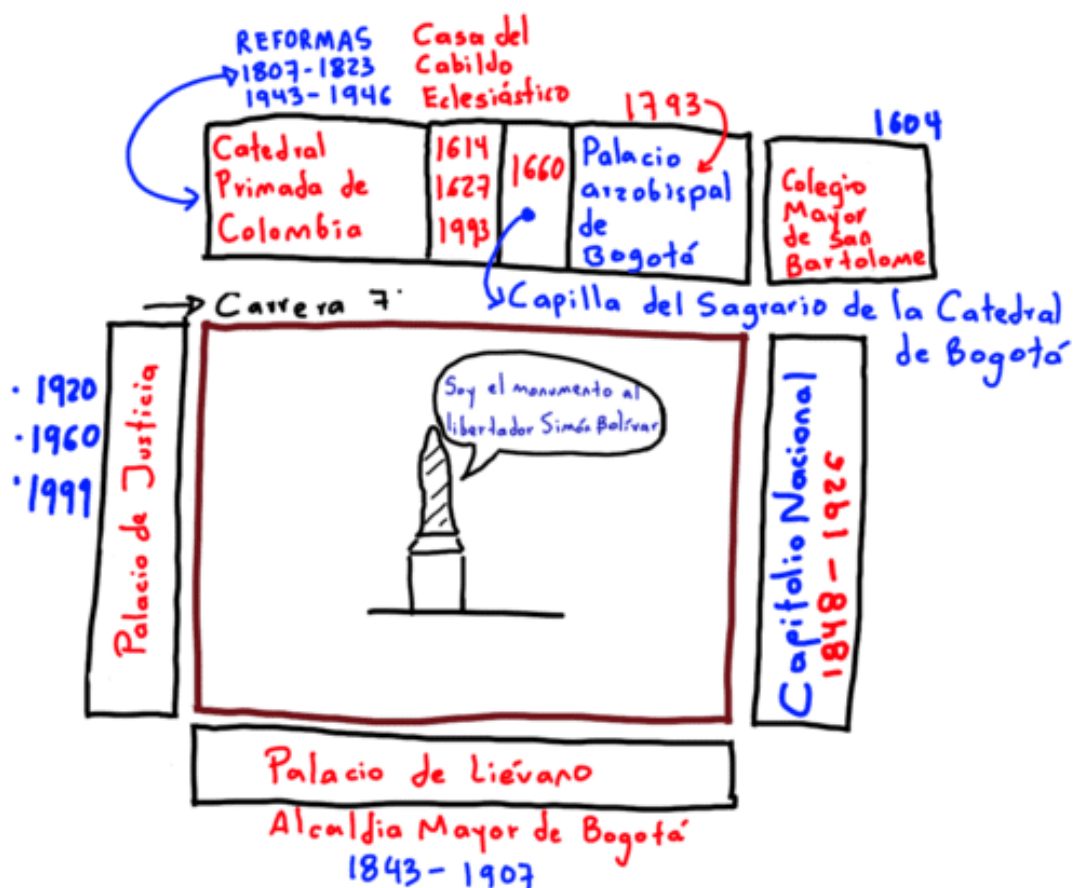 REFORMAS
1807-1823
1943-1946
Casa del
Cabildo
Eclesiástico
1793
1604
Catedral
Primada de
Colombia
1614
1627
1993
1660
Palacio
arzobispal
de
Bogotá
Colegio
Mayor
de San
Bartolome
Carrera 7
Capilla del Sagrario de la Catedral
de Bogotá
· 1920
· 1960
· 1991
Palacio de Justicia
Soy el monumento al
libertador Simón Bolívar
Capitolio Nacional
1848 - 1926
Palacio de Liévano
Alcaldia Mayor de Bogotá
1843 - 1907